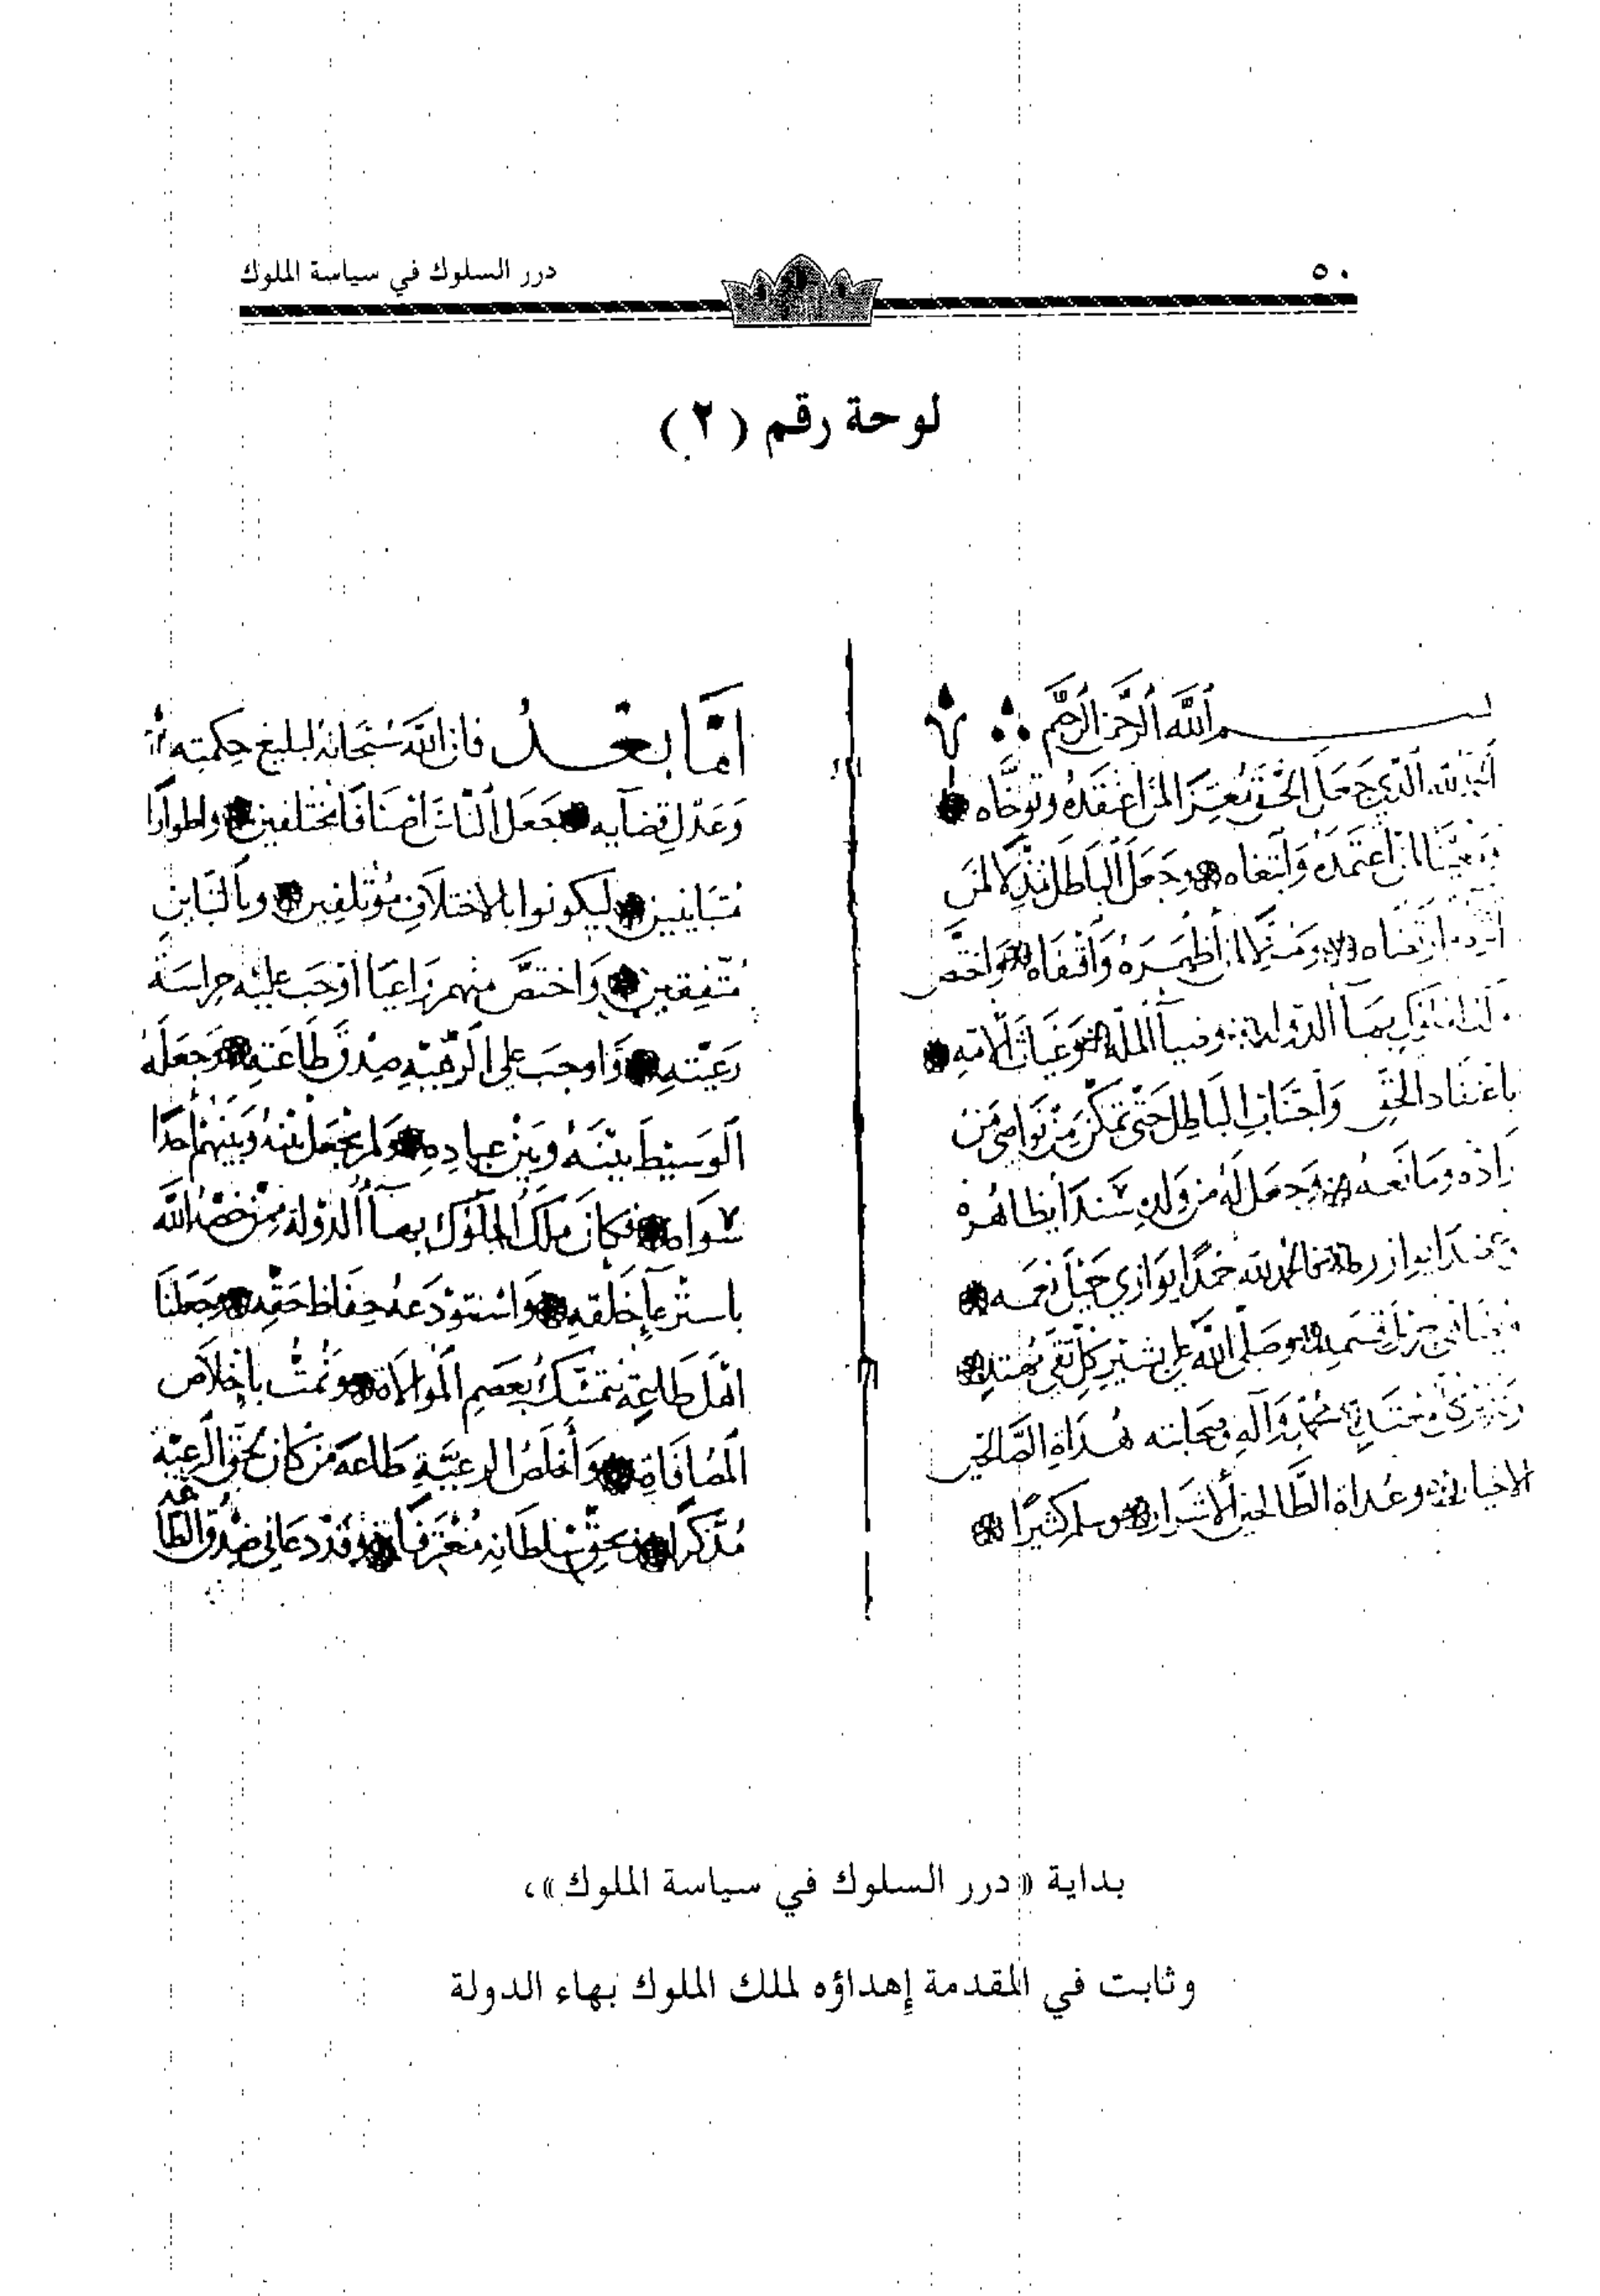 ٥٠
درر السلوك في سياسة الملوك
لوحة رقم (٢)
بسم الله الرحمن الرحيم
الحمد لله الذي جعل الحق مُعِزًّا لمن اعتقده وتوخّاه
لمن اعتمده وابتغاه وجعل الباطل مذلا لمن
ارتضاه ومذيلا لمن أظهره واقتفاه واختص
بهاء الدولة وضياء الملة وغياث الأمة
باعتقاد الحق واجتناب الباطل حتى تمكن من نواصي من
رادّه ومانعه وجعل له من ولده سندا يظاهره
وعضدا يوازره فالحمد لله حمدًا يوازي جميل نعمه
ويضاهي جزيل قسمه وصلى الله على بشير كل تقي مهتد
محمد وآله وصحابته هداة الصالحين
الاخيار وعداة الطالحين الأشرار وسلم كثيرًا
أمّا بعد فان الله سُبحانه لبليغ حكمته
وعدل قضآيه جعل الناس أصنافا مختلفين واطوارًا
متباينين ليكونوا بالاختلاف مؤتلفين وبالتباين
متفقين واختص منهم راعيا أوجب عليه حراسة
رعيته وأوجب على الرعية صدق طاعته وجعله
الوسيط بينه وبين عباده ولم يجعل بينه وبينهم أحدًا
سواه فكان ملك الملوك بهاء الدولة ممن خصه الله
باسترعاء خلقه واستودعه حفاظ حقه وجعلنا
أهل طاعته نتمسك بعصم الموالاة ونمت بإخلاص
المصافاة وأخلص الرعية طاعة من كان بحق الرعية
مُذكرًا وبحق سلطانه مُعترفا وقد دعاني صدق الطاعة
بداية «درر السلوك في سياسة الملوك»،
وثابت في المقدمة إهداؤه لملك الملوك بهاء الدولة